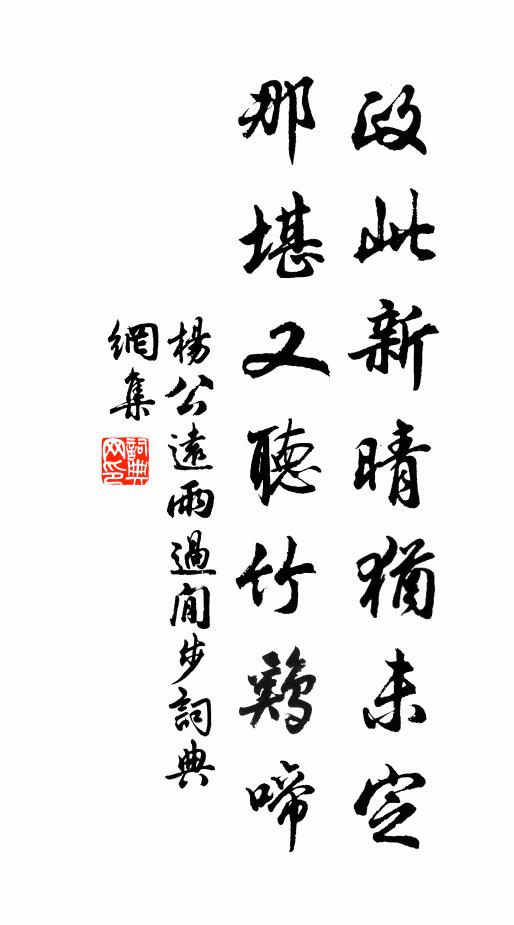 政此新晴猶未定
那堪又聽竹鷄啼
楊公遠雨過閒步詞典
網集
詞典
网印